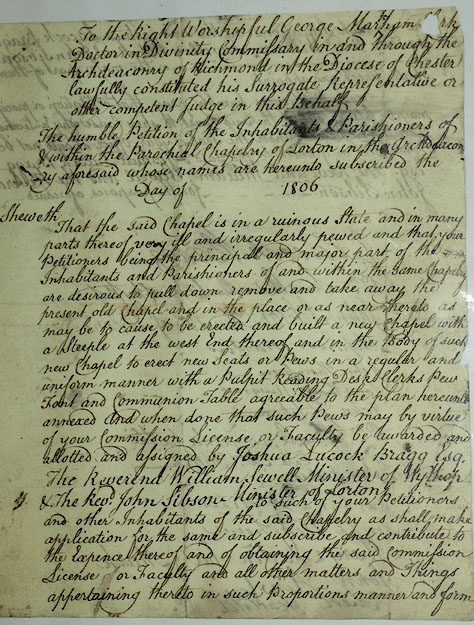 To the Right Worshipful George Markham Clerk
Doctor in Divinity Commissary in and through the
Archdeaconry of Richmond in the Diocese of Chester
lawfully constituted his Surrogate Representative or
other competent Judge in this Behalf
The humble Petition of the Inhabitants & Parishioners of
& within the Parochial Chapelry of Lorton in the Archdeacon
ry aforesaid whose names are hereunto subscribed the
Day of 1806
Sheweth
That the said Chapel is in a ruinous State and in many
parts thereof very ill and irregularly pewed and that your
Petitioners being the principal and major part of the
Inhabitants and Parishioners of and within the same Chapelry
are desirous to pull down remove and take away the
present old Chapel and in the place or as near thereto as
may be to cause to be erected and built a new Chapel with
a Steeple at the west End thereof and in the Body of such
new Chapel to erect new Seats or Pews in a regular and
uniform manner with a Pulpit Reading Desk Clerks Pew
Font and Communion Table agreeable to the plan hereunto
annexed And when done that such Pews may by virtue
of your Commission License or Faculty be awarded and
allotted and assigned by Joshua Lucock Bragg Esq
The Reverend William Sewell Minister of Wythop
& The Revd. John Sibson Minister of Lorton
to such of your Petitioners
and other Inhabitants of the said Chapelry as shall make
application for the same and subscribe and contribute to
the Expence thereof and of obtaining the said Commission
License or Faculty and all other matters and Things
appertaining thereto in such Proportions manner and form